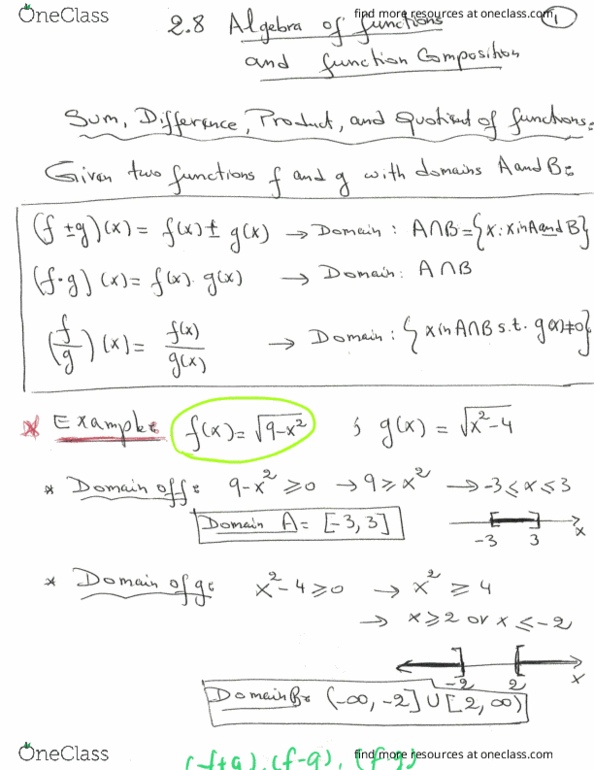 OneClass find more resources at oneclass.com
2.8 Algebra of functions 1
and function Composition
Sum, Difference, Product, and Quotient of functions:
Given two functions f and g with domains A and B:
(f ± g)(x) = f(x) ± g(x) → Domain : A∩B = {x : x in A and B}
(f·g)(x) = f(x). g(x) → Domain: A∩B
(f/g)(x) = f(x)/g(x) → Domain : {x in A∩B s.t. g(x)≠0}
* Example: f(x) = √(9-x²) ; g(x) = √(x²-4)
* Domain of f: 9-x² ≥ 0 → 9 ≥ x² → -3 ≤ x ≤ 3
Domain A = [-3, 3]
-3 3 x
* Domain of g: x²-4 ≥ 0 → x² ≥ 4
→ x ≥ 2 or x ≤ -2
-2 2 x
Domain B: (-∞, -2] ∪ [2, ∞)
(f+g), (f-g), (f·g)
OneClass find more resources at oneclass.com